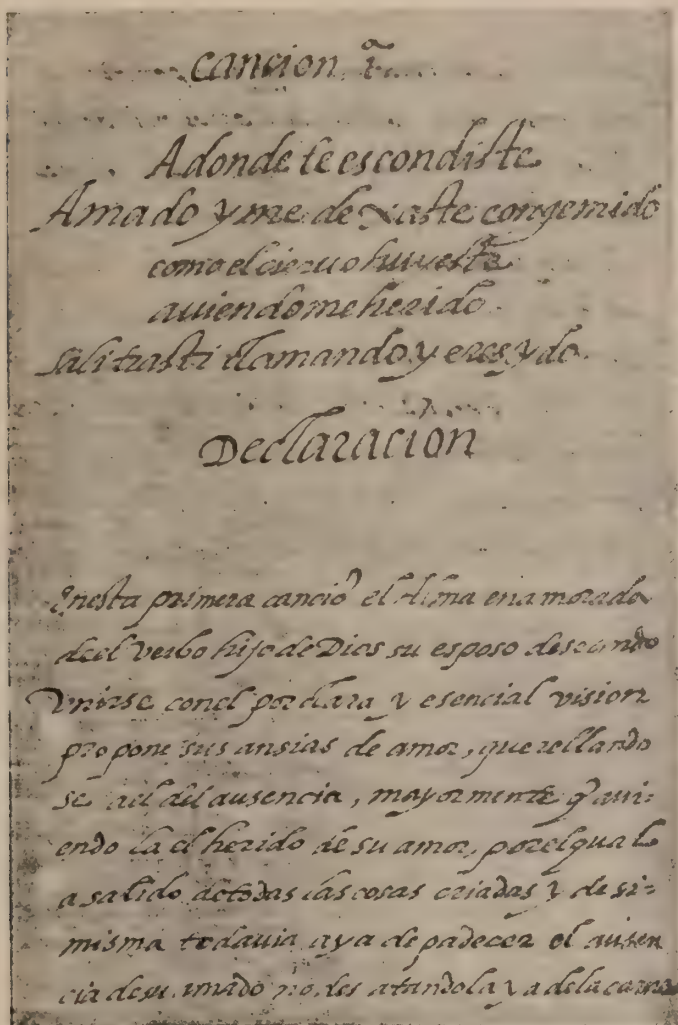 cancion 1ª
Adonde te escondiste
Amado y me dexaste con gemido
como el cieruo huiueste
auiendome herido
sali tras ti clamando y eres ydo.
Declaracion
Enesta primera canciō el Alma enamorada
deel verbo hijo de Dios su esposo deseando
Vnirse conel por clara y esencial vision
propone sus ansias de amor, querellando
se a el del ausencia, mayormente q̄ aui-
endo la el herido de su amor, por el qual
a salido de todas las cosas criadas y de si-
misma todauia aya de padecer el ausen
cia de su amado no des atandola ya dela carne